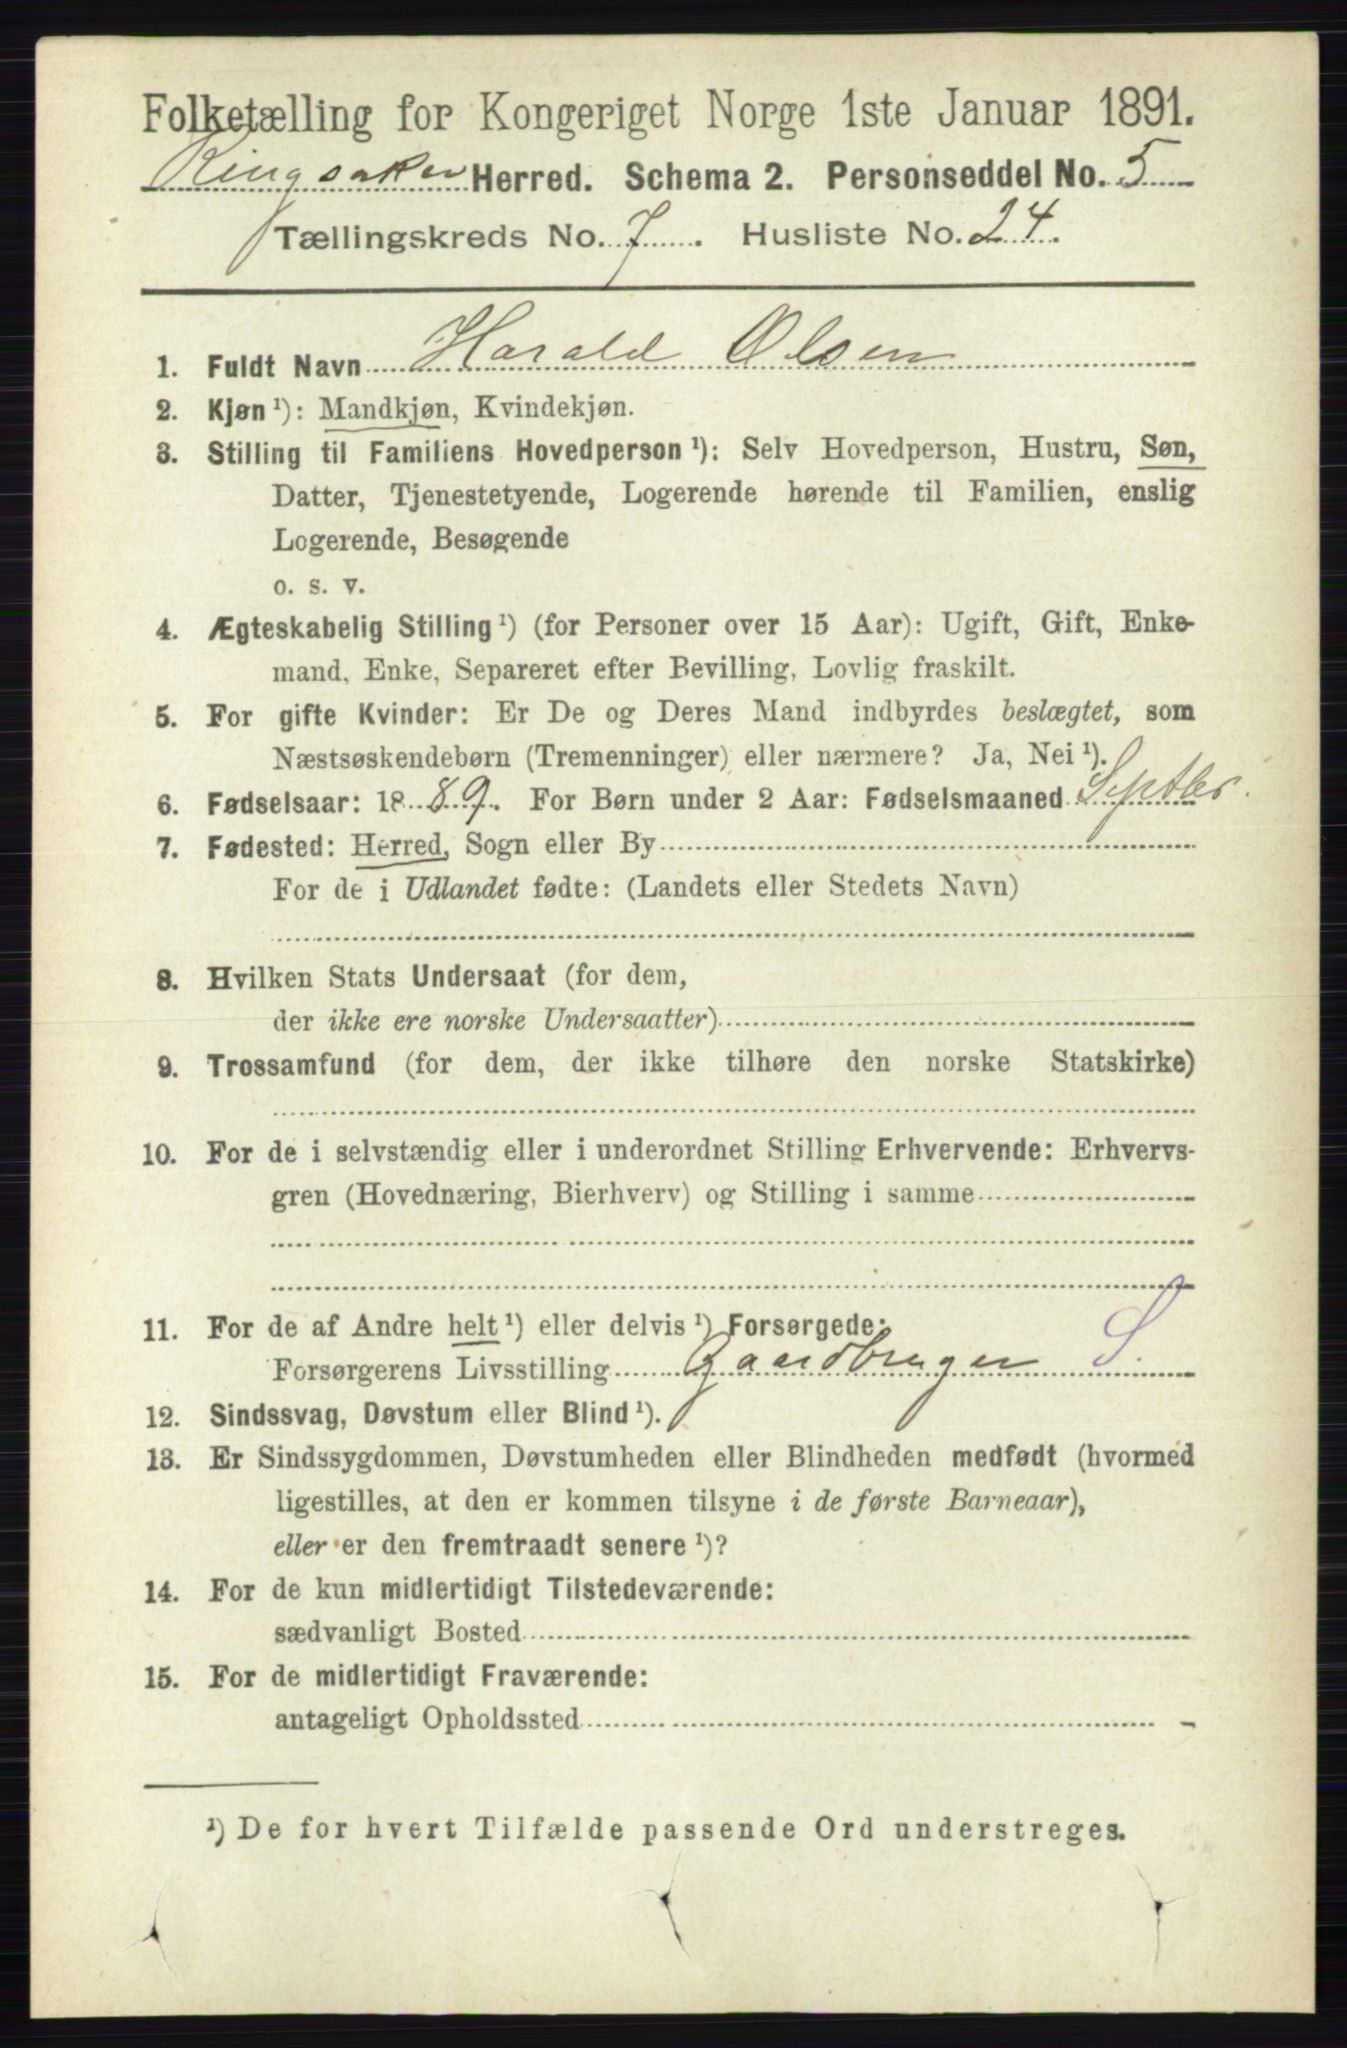 Folketælling for Kongeriget Norge 1ste Januar 1891.
Ringsaker Herred. Schema 2. Personseddel No. 5
Tællingskreds No. 7. Husliste No. 24.
1. Fuldt Navn Harald Olsen
2. Kjøn ¹): Mandkjøn, Kvindekjøn.
3. Stilling til Familiens Hovedperson ¹): Selv Hovedperson, Hustru, Søn,
Datter, Tjenestetyende, Logerende hørende til Familien, enslig
Logerende, Besøgende
o. s. v.
4. Ægteskabelig Stilling ¹) (for Personer over 15 Aar): Ugift, Gift, Enke-
mand, Enke, Separeret efter Bevilling, Lovlig fraskilt.
5. For gifte Kvinder: Er De og Deres Mand indbyrdes beslægtet, som
Næstsøskendebørn (Tremenninger) eller nærmere? Ja, Nei ¹).
6. Fødselsaar: 1889. For Børn under 2 Aar: Fødselsmaaned Septbr.
7. Fødested: Herred, Sogn eller By
For de i Udlandet fødte: (Landets eller Stedets Navn)
8. Hvilken Stats Undersaat (for dem,
der ikke ere norske Undersaatter)
9. Trossamfund (for dem, der ikke tilhøre den norske Statskirke)
10. For de i selvstændig eller i underordnet Stilling Erhvervende: Erhvervs-
gren (Hovednæring, Bierhverv) og Stilling i samme
11. For de af Andre helt ¹) eller delvis ¹) Forsørgede:
Forsørgerens Livsstilling Gaardbruger S.
12. Sindssvag, Døvstum eller Blind ¹).
13. Er Sindssygdommen, Døvstumheden eller Blindheden medfødt (hvormed
ligestilles, at den er kommen tilsyne i de første Barneaar),
eller er den fremtraadt senere ¹)?
14. For de kun midlertidigt Tilstedeværende:
sædvanligt Bosted
15. For de midlertidigt Fraværende:
antageligt Opholdssted
¹) De for hvert Tilfælde passende Ord understreges.